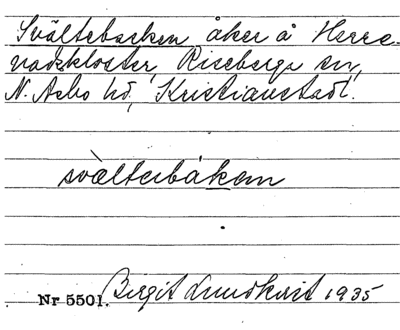 Svältebacken åker å Herre-
vadskloster, Riseberga sn,
N. Åsbo hd, Kristianstadsl.
svälterbåkɑn
Nr 5501. Birgit Lundkvist 1935